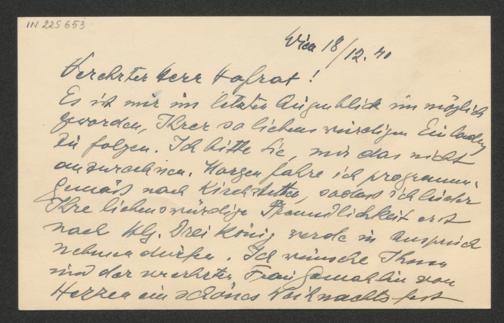 IN 225653
Wien 18/12. 40
Verehrter Herr Hofrat!
Es ist mir im letzten Augenblick unmöglich
geworden, Ihrer so liebenswürdigen Einladung
zu folgen. Ich bitte Sie, mir das nicht
anzurechnen. Morgen fahre ich programm-
gemäß nach Kirchstetten, sodass ich leider
Ihre liebenswürdige Freundlichkeit erst
nach Hlg. Drei König werde in Anspruch
nehmen dürfen. Ich wünsche Ihnen
und der verehrten Frau Gemahlin von
Herzen ein schönes Weihnachtsfest